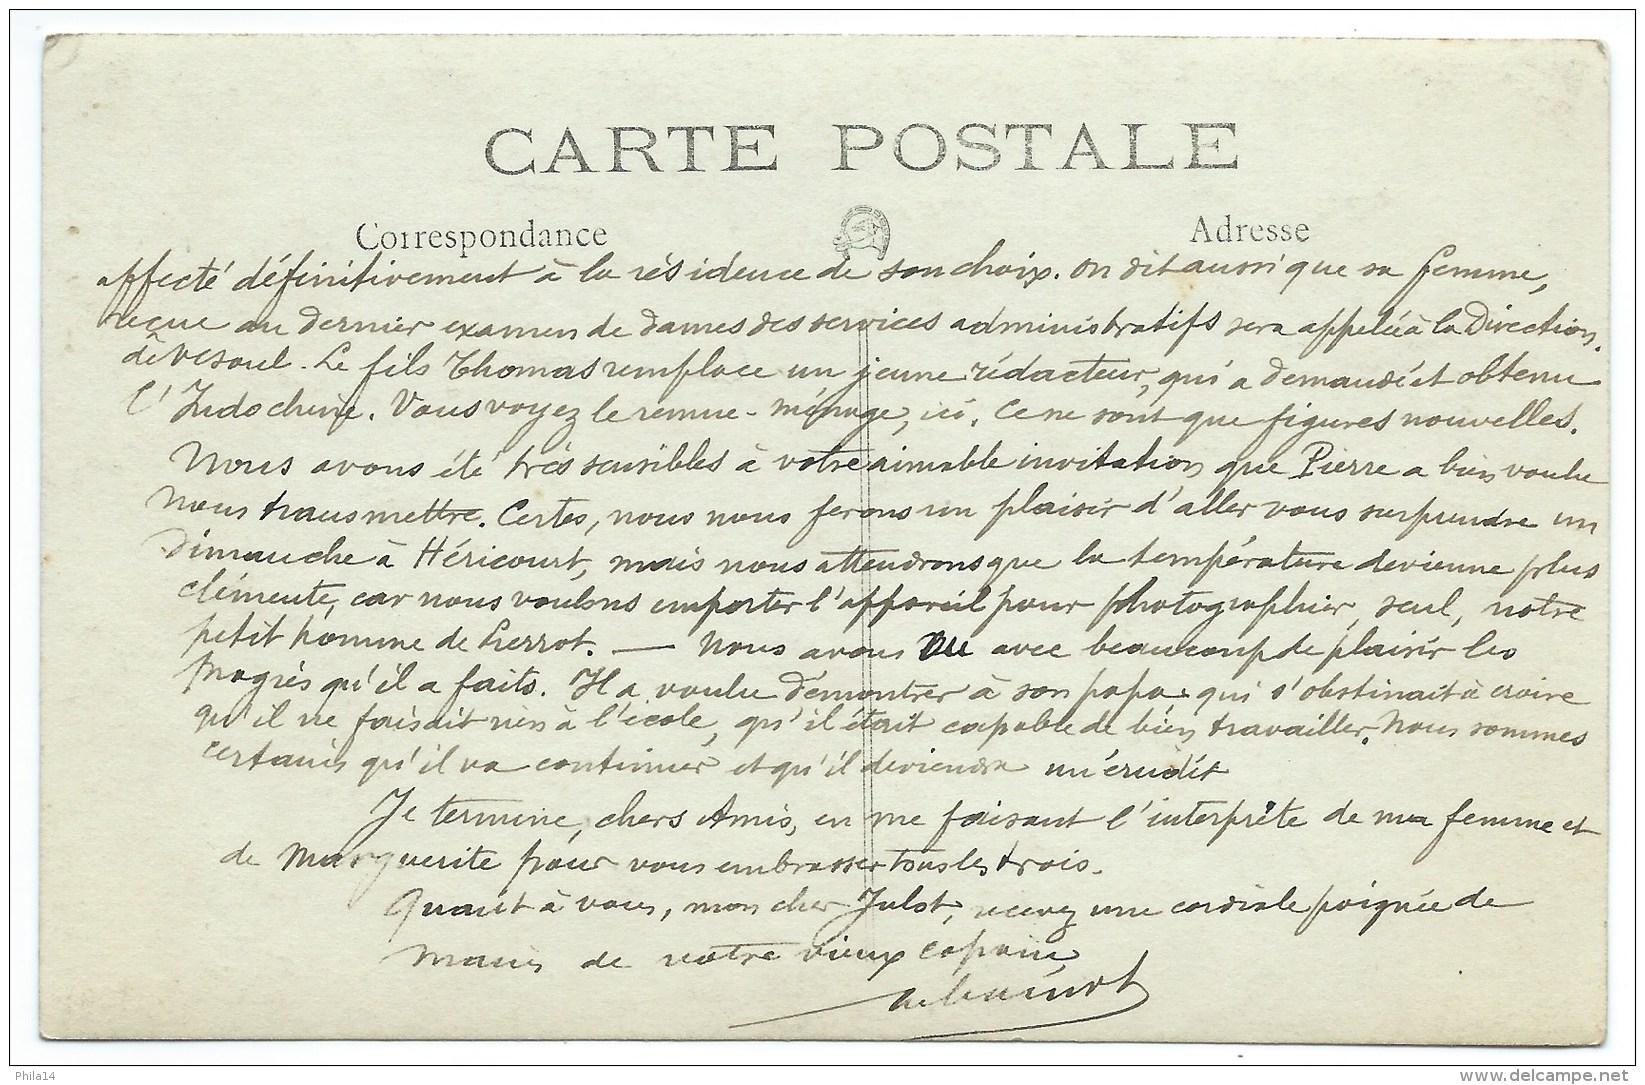 CARTE POSTALE
Correspondance
Adresse
affecté définitivement à la résidence de son choix. On dit aussi que sa femme,
reçue au dernier examen de dames des services administratifs sera appelée à la Direction
de Vesoul. Le fils Thomas remplace un jeune rédacteur, qui a demandé et obtenu
l'Indochine. Vous voyez le remue-ménage, ici. Ce ne sont que figures nouvelles.
Nous avons été très sensibles à votre aimable invitation que Pierre a bien voulu
nous transmettre. Certes, nous nous ferons un plaisir d'aller vous surprendre un
Dimanche à Héricourt, mais nous attendrons que la température devienne plus
clémente, car nous voulons emporter l'appareil pour photographier, seul, notre
petit homme de Pierrot. — Nous avons vu avec beaucoup de plaisir les
progrès qu'il a faits. Il a voulu démontrer à son papa qui s'obstinait à croire
qu'il ne faisait rien à l'école, qu'il était capable de bien travailler. Nous sommes
certains qu'il va continuer et qu'il deviendra un érudit
Je termine, chers Amis, en me faisant l'interprète de ma femme et
de Marguerite pour vous embrasser tous les trois.
Quant à vous, mon cher Julot, recevez une cordiale poignée de
mains de votre vieux copain
Phila14
delcampe.net